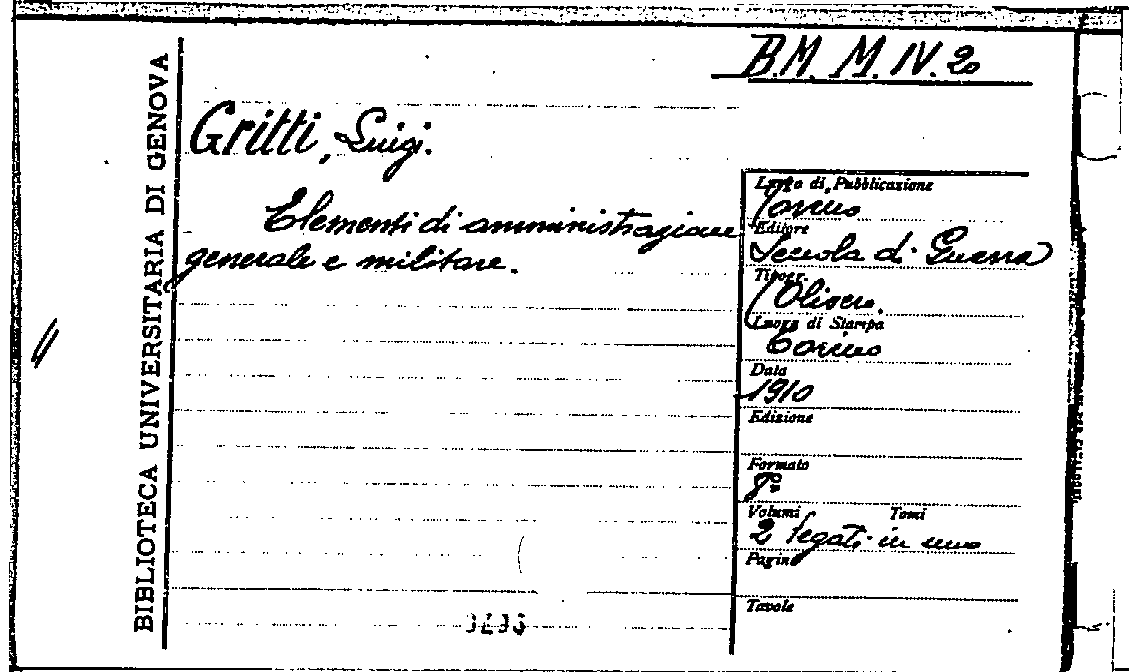 B.M. M. IV. 20
BIBLIOTECA UNIVERSITARIA DI GENOVA
Gritti, Luigi.
Elementi di amministrazione
generale e militare.
Luogo di Pubblicazione
Torino
Editore
Scuola di Guerra
Tipogr.
(Olivero.
Luogo di Stampa
Torino
Data
1910
Edizione
Formato
8º
Volumi Tomi
2 legati in uno
Pagine
Tavole